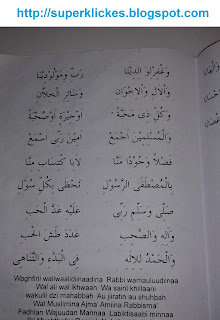 http://superklickes.blogspot.com
وَغْفِرْلِوَ الدِيْنَا رَبِّ وَمَوْلُوْدِيْنَا
وَلْآلِ وَالْاِخْوَانِ وَسَائِرِ الْخِلاَّنِ
وَكُلِّ ذِى مَحَبَّةْ اَوْجِيْرَةٍ اَوْصُحْبَةْ
وَالْمُسْلِمِيْنَ اَجْمَعْ آمِيْنَ رَبِّى اسْمَعْ
فَضْلاً وَجُوْدًا مَنَّا لَابِاكْتِسَابٍ مِنَّا
بِالْمُصْطَفَى الرَّسُوْلِ نَحْظَى بِكُلِّ سُوْلِ
صَلَّى وَسَلَّمَ رَبِّى عَلَيْهِ عَدَّ الْحَبِّ
وَآلِهِ وَالصَّحْبِ عَدَدَ طَشِّ السُّحْبِ
وَالْحَمْدُ لِلْإِلٰهِ فِى الْبَدْءِ وَالتَّنَاهِى
Waghfirli walwaalidiinaadina Rabbi wamauluudiinaa
Wal ali wal ikhwaan Wa sairil khillaani
wakulli dzi mahabbah Au jiiratin au shuhbah
Wal Musliimina Ajma' Amiina Rabbisma'
Fadhlan Wajuudan Mannaa Labiktisaabi minnaa